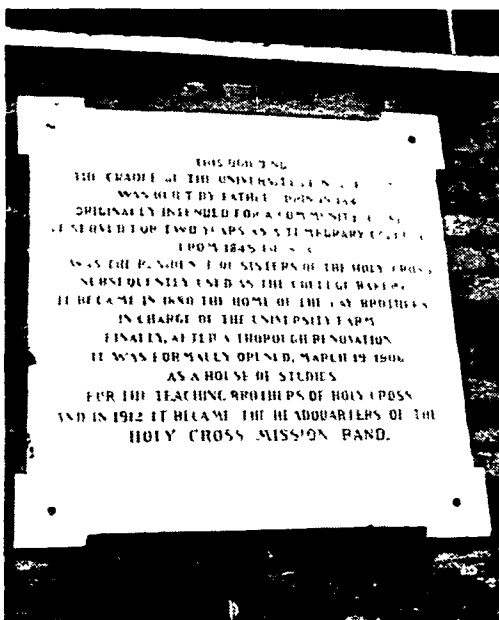 THIS BUILDING
THE CRADLE OF THE UNIVERSITY
WAS BUILT BY FATHER
ORIGINALLY INTENDED FOR A COMMUNITY
IT SERVED FOR TWO YEARS AS A TEMPORARY
FROM 1845
WAS THE RESIDENCE OF SISTERS OF THE HOLY CROSS
SUBSEQUENTLY USED AS THE COLLEGE BAKERY
IT BECAME IN 1880 THE HOME OF THE LAY BROTHERS
IN CHARGE OF THE UNIVERSITY FARM
FINALLY, AFTER A THOROUGH RENOVATION
IT WAS FORMALLY OPENED, MARCH 19 1906
AS A HOUSE OF STUDIES
FOR THE TEACHING BROTHERS OF HOLY CROSS
AND IN 1912 IT BECAME THE HEADQUARTERS OF THE
HOLY CROSS MISSION BAND.